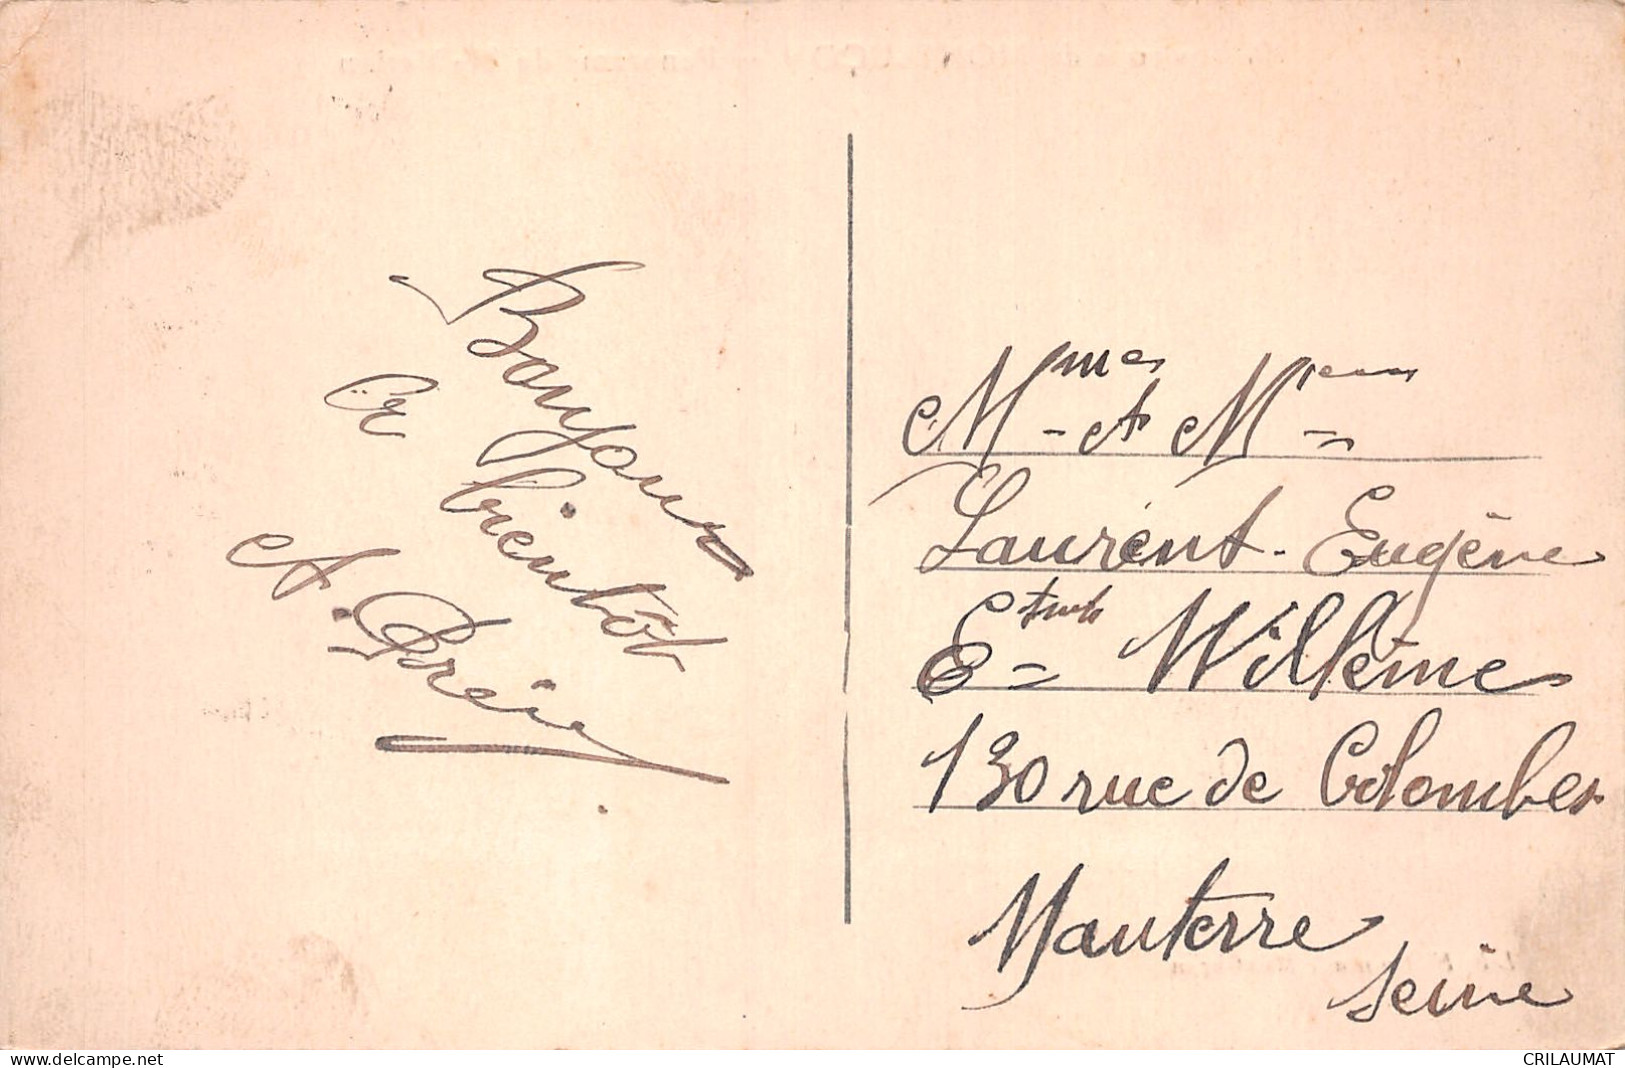 Bonjour
A bientôt
A. Préey
Mmes et Mrieurs
Laurent-Eugène
Ets Willème
130 rue de Colombes
Nanterre
Seine
www.delcampe.net
CRILAUMAT